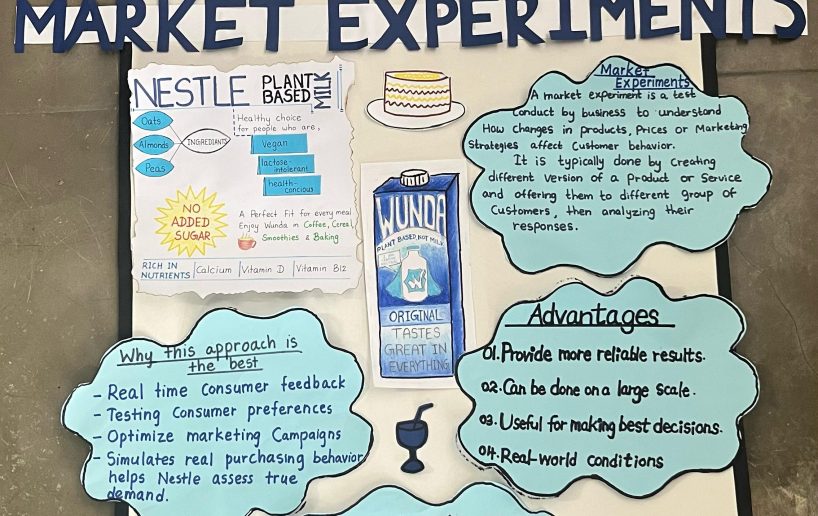 MARKET EXPERIMENTS
NESTLE PLANT BASED MILK
Oats
Almonds
Peas
INGREDIENTS
Healthy choice
for people who are,
Vegan
lactose-
intolerant
health-
concious
NO
ADDED
SUGAR
A Perfect Fit for every meal
Enjoy Wunda in Coffee, Cereal,
Smoothies & Baking
RICH IN
NUTRIENTS
Calcium
Vitamin D
Vitamin B12
WUNDA
PLANT BASED NOT MILK
W
ORIGINAL
TASTES
GREAT IN
EVERYTHING
Market
Experiments
A market experiment is a test
conduct by business to understand
How changes in products, Prices or Marketing
Strategies affect Customer behavior.
It is typically done by creating
different Version of a Product or Service
and offering them to different group of
Customers, then analyzing their
responses.
Why this approach is
the best
- Real time Consumer feedback
- Testing Consumer preferences
- Optimize marketing Campaigns
- Simulates real purchasing behavior
helps Nestle assess true
demand.
Advantages
01. Provide more reliable results.
02. Can be done on a large scale.
03. Useful for making best decisions.
04. Real-world conditions